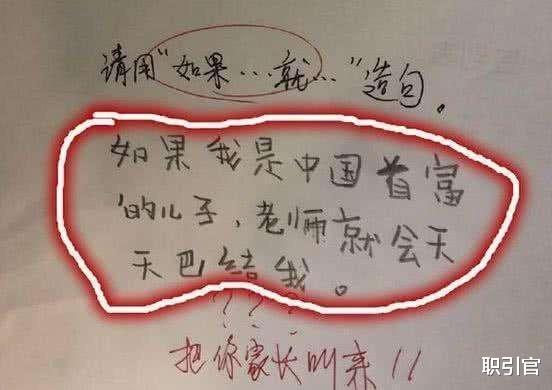 请用“如果…就…”造句。
如果我是中国首富
的儿子，老师就会天
天巴结我。
???
把你家长叫来!!
职引官